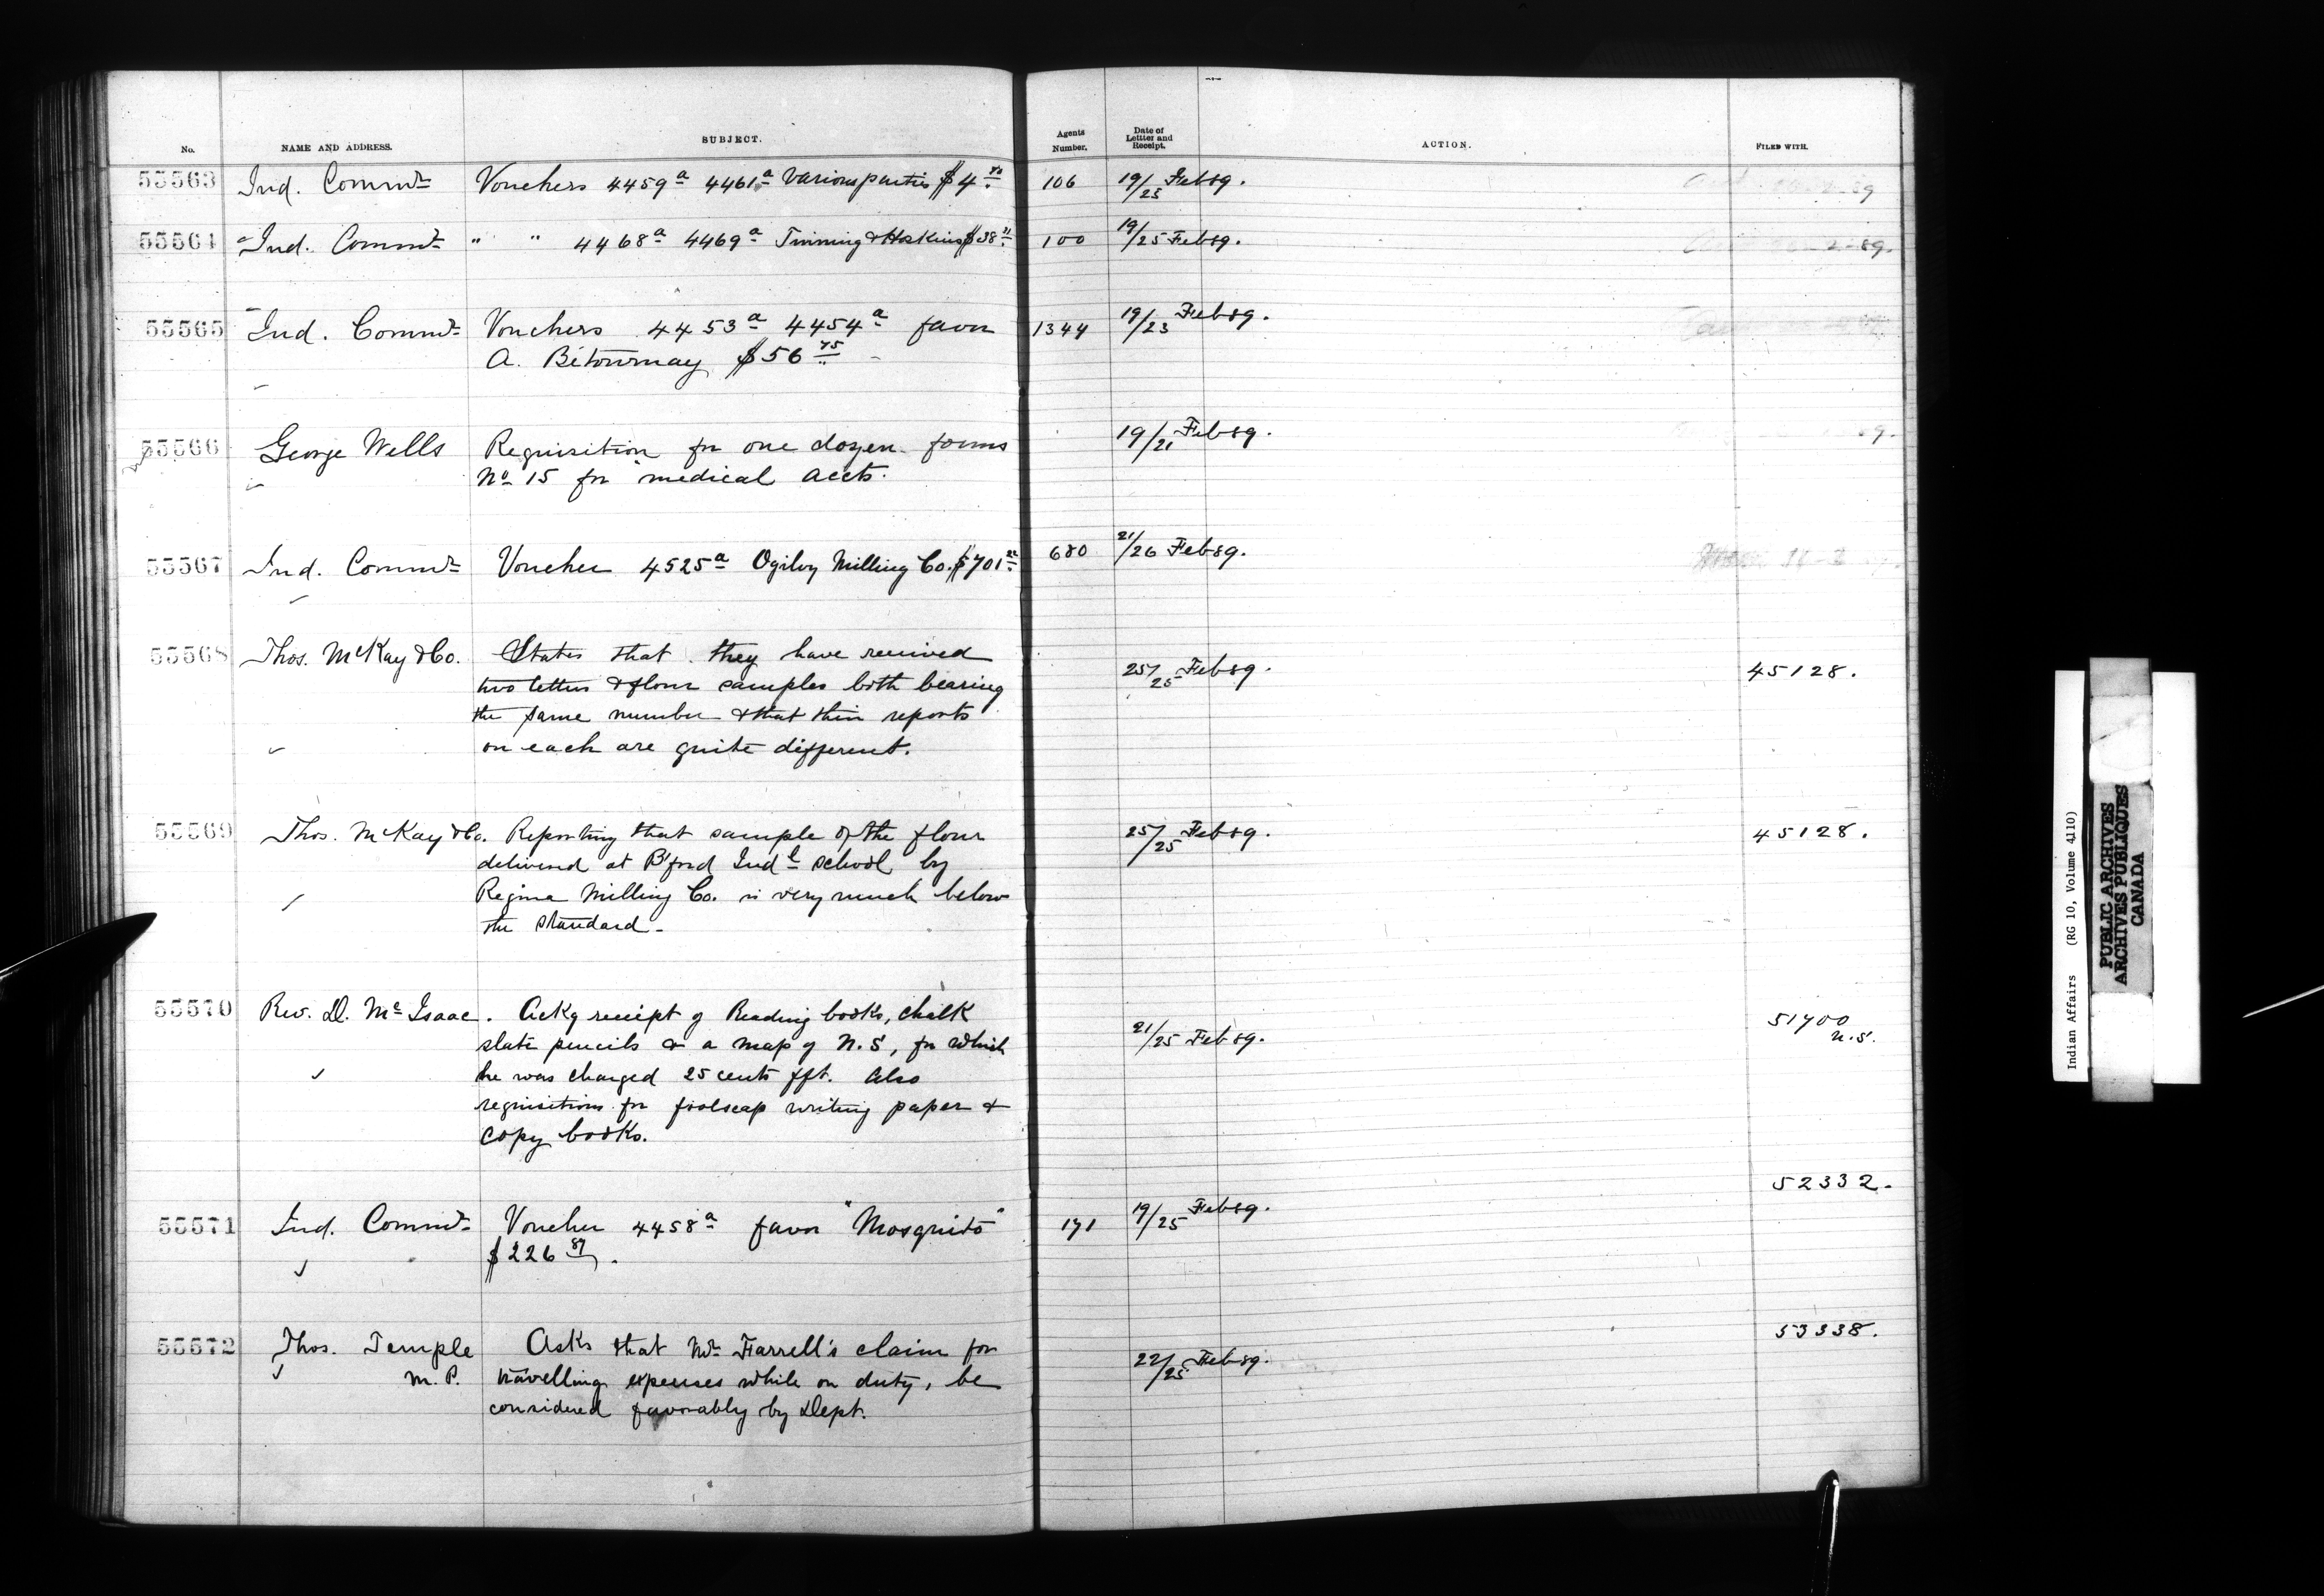 No. NAME AND ADDRESS. SUBJECT. Agents Number. Date of Lettter and Receipt. ACTION. FILED WITH.
55563 Ind. Commr Vouchers 4459a 4461a Various parties $4 106 19/25 Feb 89.
55564 Ind. Commr " " 4468a 4469a Twining & Hoskins $38 100 19/25 Feb 89.
55565 Ind. Commr Vouchers 4453a 4454a favor 1344 19/23 Feb 89.
A. Bétournay $56 75
55566 George Wells Requisition for one dozen forms 19/21 Feb 89.
No 15 for medical accts.
55567 Ind. Commr Voucher 4525a Ogilvy Milling Co. $701 680 21/26 Feb 89.
55568 Thos. McKay & Co. States that they have received 25/25 Feb 89. 45128.
two letters & flour samples both bearing
the same number & that their reports
on each are quite different.
55569 Thos. McKay & Co. Reporting that sample of the flour 25/25 Feb 89. 45128.
delivered at B'ford Indl school by
Regina Milling Co. is very much below
the standard.
55570 Rev. D. Mc Isaac. Ackg receipt of Reading books, chalk 21/25 Feb 89. 51700 N.S.
slate pencils & a map of N.S, for which
he was charged 25 cents fft. Also
requisitions for foolscap writing paper &
copy books.
55571 Ind. Commr Voucher 4458a favor "Mosquito" 171 19/25 Feb 89. 52332.
$226 87.
55572 Thos. Temple Asks that Mr Farrell's claim for 22/25 Feb 89. 53338.
M.P. travelling expenses while on duty, be
considered favorably by Dept.
Indian Affairs (RG 10, Volume 4110)
PUBLIC ARCHIVES
ARCHIVES PUBLIQUES
CANADA